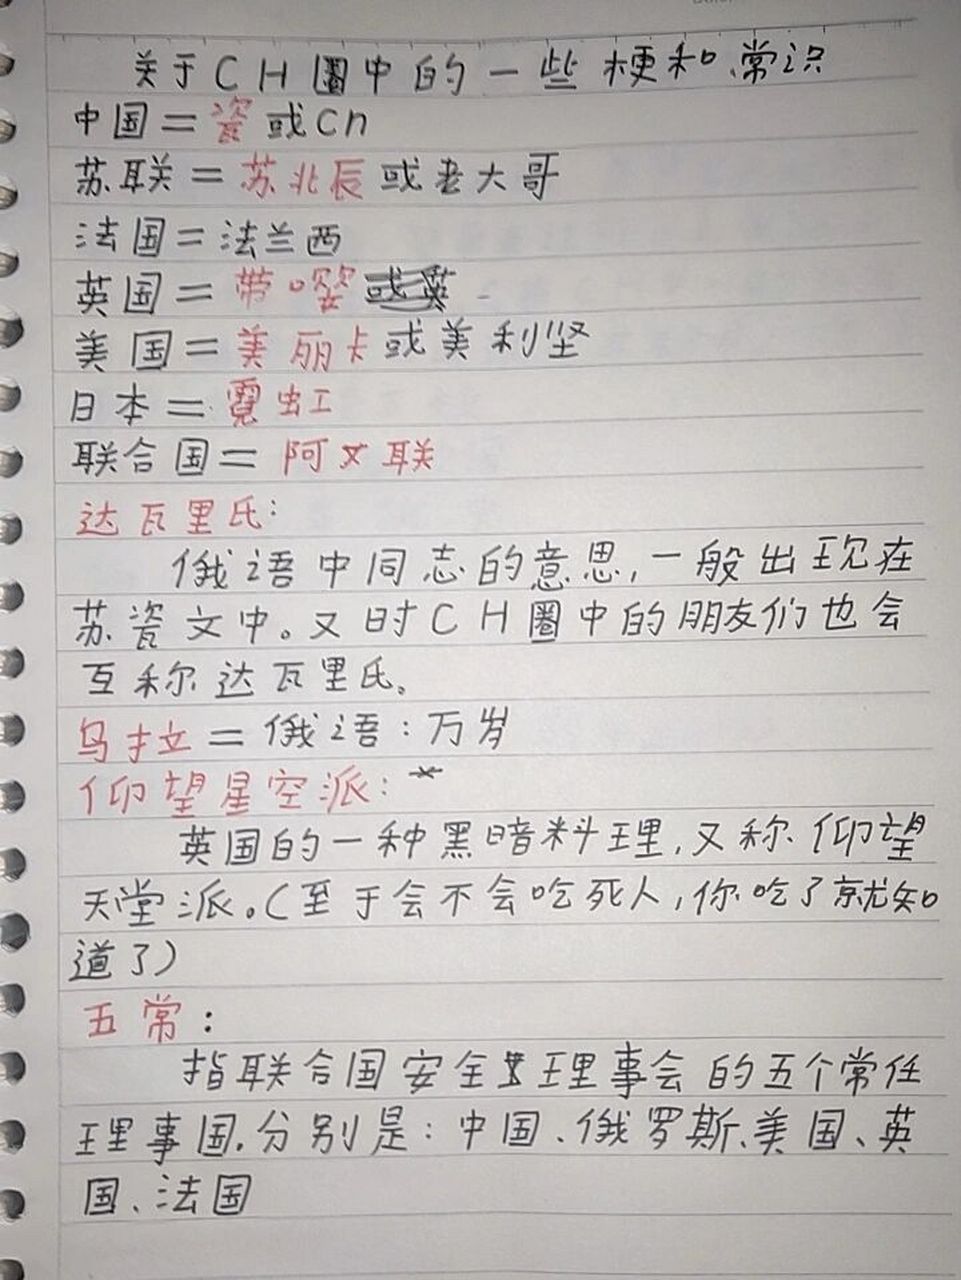 关于CH圈中的一些梗和常识
中国=瓷或cn
苏联=苏北辰或老大哥
法国=法兰西
英国=带嘤或英
美国=美丽卡或美利坚
日本=霓虹
联合国=阿乂联
达瓦里氏:
俄语中同志的意思,一般出现在
苏瓷文中。又时CH圈中的朋友们也会
互称达瓦里氏。
乌拉=俄语:万岁
仰望星空派:
英国的一种黑暗料理,又称仰望
天堂派。(至于会不会吃死人,你吃了就知
道了)
五常:
指联合国安全理事会的五个常任
理事国.分别是:中国、俄罗斯、美国、英
国、法国